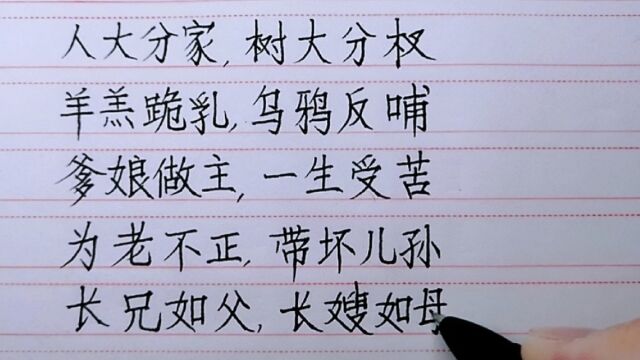 人大分家,树大分杈
羊羔跪乳,乌鸦反哺
爹娘做主,一生受苦
为老不正,带坏儿孙
长兄如父,长嫂如母